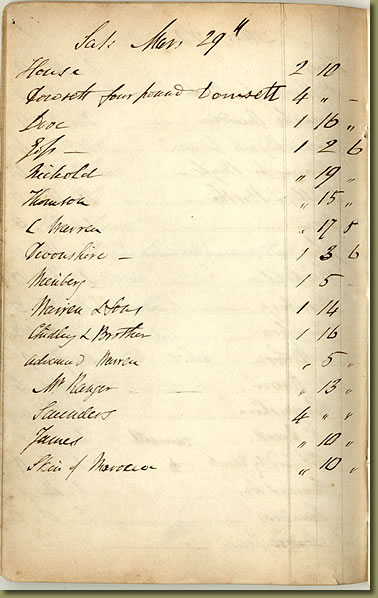 Sat Mar 29th
House 2 10
Dowsett four pound Dowsett 4 " -
Droc 1 16 "
1 2 6
Nichold " 19 "
Thomson " 15 "
C Warren " 17 8
Devonshire - 1 3 6
Neinberg 1 5 -
Warren & Sons 1 14
Chidley & Brother 1 16
advanced Warren " 5 "
Mr Ranger " 13 "
Saunders 4 " "
James " 10 "
Skin of Morocco " 10 "